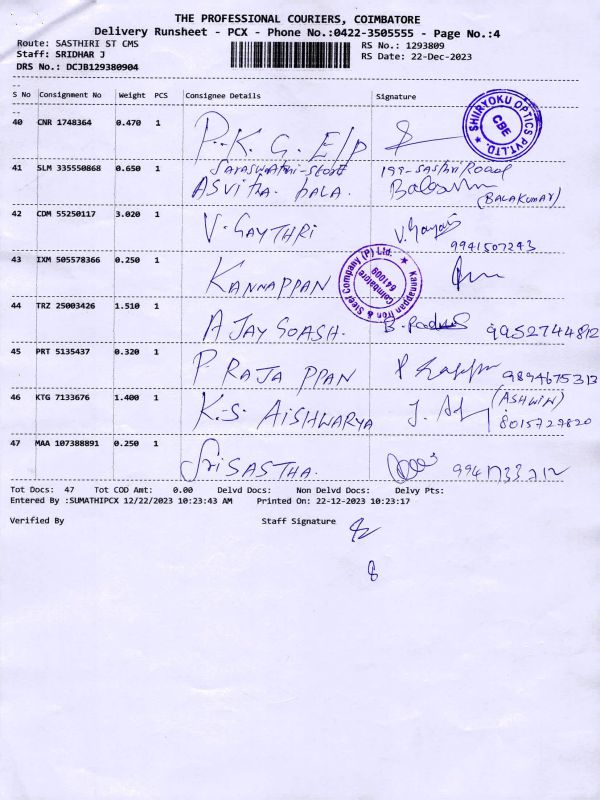 THE PROFESSIONAL COURIERS, COIMBATORE
Delivery Runsheet - PCX - Phone No.:0422-3505555 - Page No.:4
Route: SASTHIRI ST CMS
RS No.: 1293809
Staff: SRIDHAR J
RS Date: 22-Dec-2023
DRS No.: DCJB129380904
S No Consignment No Weight PCS Consignee Details Signature
40 CNR 1748364 0.470 1 P.K. G. E/P
SHIIRYOKU OPTICS PVT.LTD. CBE
41 SLM 335550868 0.650 1 Saraswathi-Store 199-Sasthri Road
ASVitha. bala. (BALAKUMAR)
42 CDM 55250117 3.020 1 V. GAYTHRI V. Gayatri
9941507243
43 IXM 505578366 0.250 1 KANNAPPAN
Kannappan Iron & Steel Company (P) Ltd. Coimbatore 641009
44 TRZ 25003426 1.510 1 AJAY GOASH. 9952744812
45 PRT 5135437 0.320 1 P RAJA PPAN 9894675313
46 KTG 7133676 1.400 1 K.S. AISHWARYA (ASHWIN)
8015727820
47 MAA 107388891 0.250 1 Sri SASTHA. 9941733212
Tot Docs: 47 Tot COD Amt: 0.00 Delvd Docs: Non Delvd Docs: Delvy Pts:
Entered By :SUMATHIPCX 12/22/2023 10:23:43 AM Printed On: 22-12-2023 10:23:17
Verified By Staff Signature